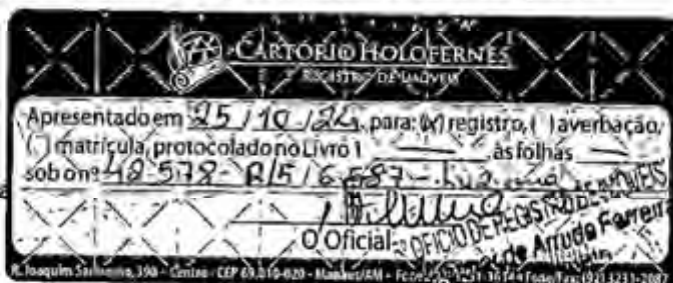 CARTÓRIO HOLOFERNES
REGISTRO DE IMÓVEIS
Apresentado em 25/10/24, para: (x) registro, ( ) averbação,
( ) matrícula, protocolado no Livro 1 às folhas
sob o nº 48.578 - R/5/6.587 -
O Oficial
OFÍCIO DE REGISTRO DE IMÓVEIS
de Arruda Ferreira
R. Joaquim Sarmento, 390 - Centro - CEP 69.010-020 - Manaus/AM - Fone/Fax: (92) 3231-2087